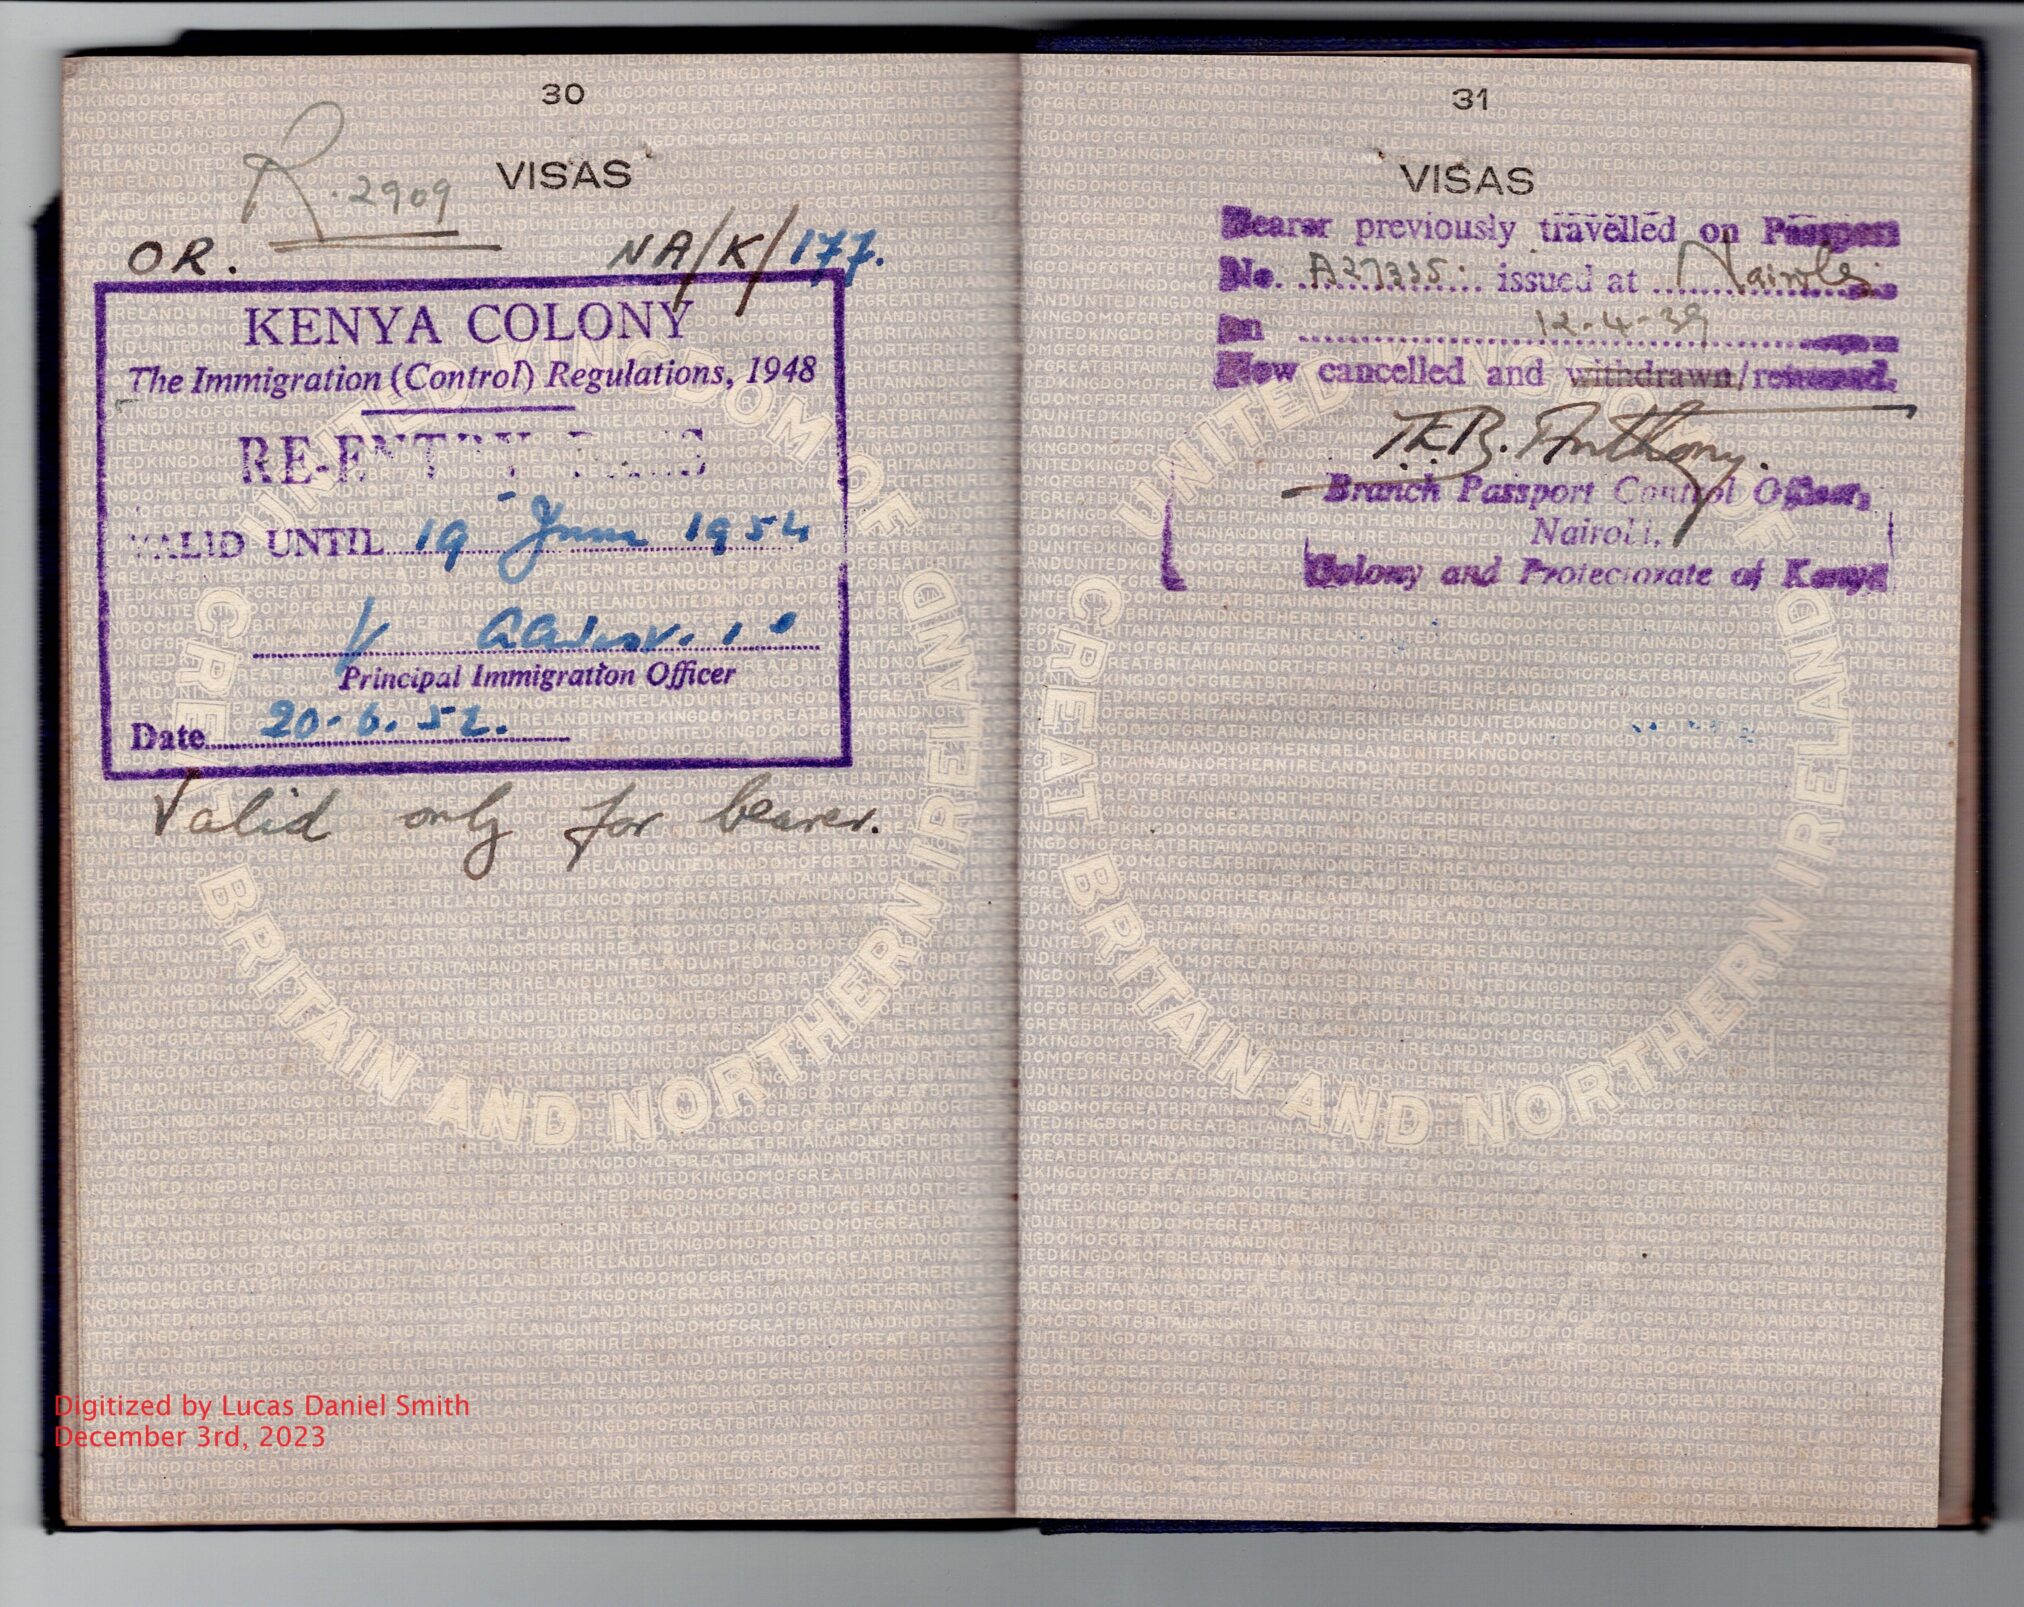 30
VISAS
R.2909
OR. NA/K/177.
KENYA COLONY
The Immigration (Control) Regulations, 1948
RE-ENTRY PASS
VALID UNTIL 19 June 1954
Principal Immigration Officer
Date 20-6.52.
Valid only for bearer.
31
VISAS
Bearer previously travelled on Passport
No. A27335 issued at Nairobi
on 12-4-39
Now cancelled and withdrawn/returned.
T.E.B. Anthony.
Branch Passport Control Officer,
Nairobi,
Colony and Protectorate of Kenya
UNITED KINGDOM OF GREAT BRITAIN AND NORTHERN IRELAND
UNITED KINGDOM OF GREAT BRITAIN AND NORTHERN IRELAND
Digitized by Lucas Daniel Smith
December 3rd, 2023